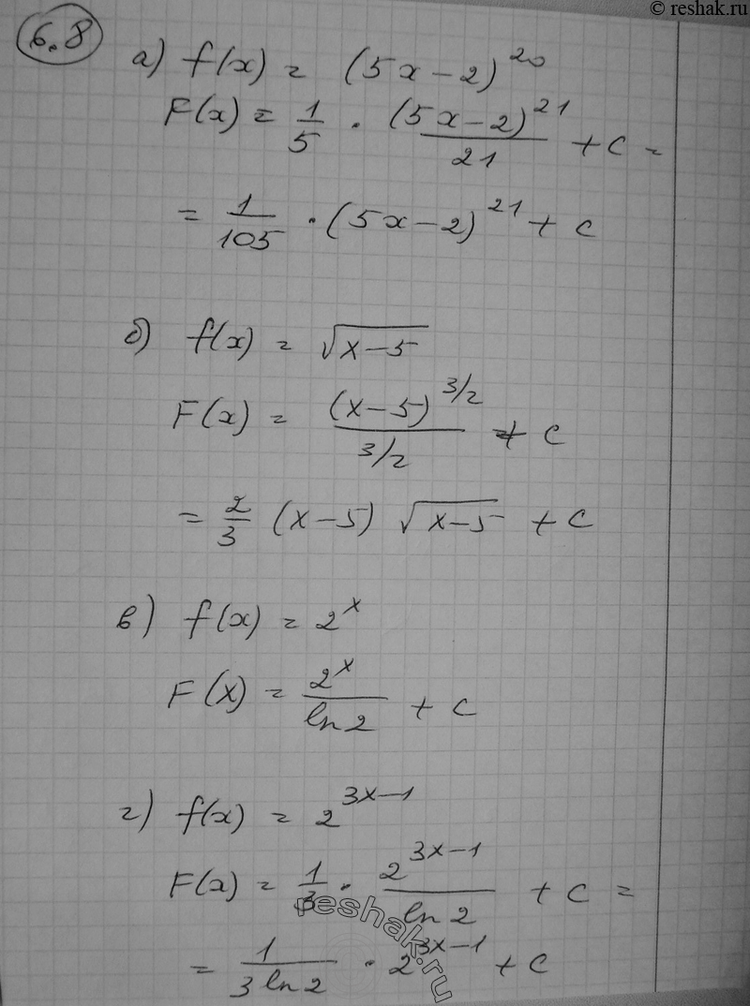 © reshak.ru
6.8
а) f(x) = (5x-2)^20
F(x) = 1/5 · (5x-2)^21/21 + C =
= 1/105 · (5x-2)^21 + C
б) f(x) = √(x-5)
F(x) = (x-5)^(3/2)/(3/2) + C
= 2/3 (x-5) √(x-5) + C
в) f(x) = 2^x
F(x) = 2^x/ln2 + C
г) f(x) = 2^(3x-1)
F(x) = 1/3 · 2^(3x-1)/ln2 + C =
reshak.ru
= 1/(3ln2) · 2^(3x-1) + C